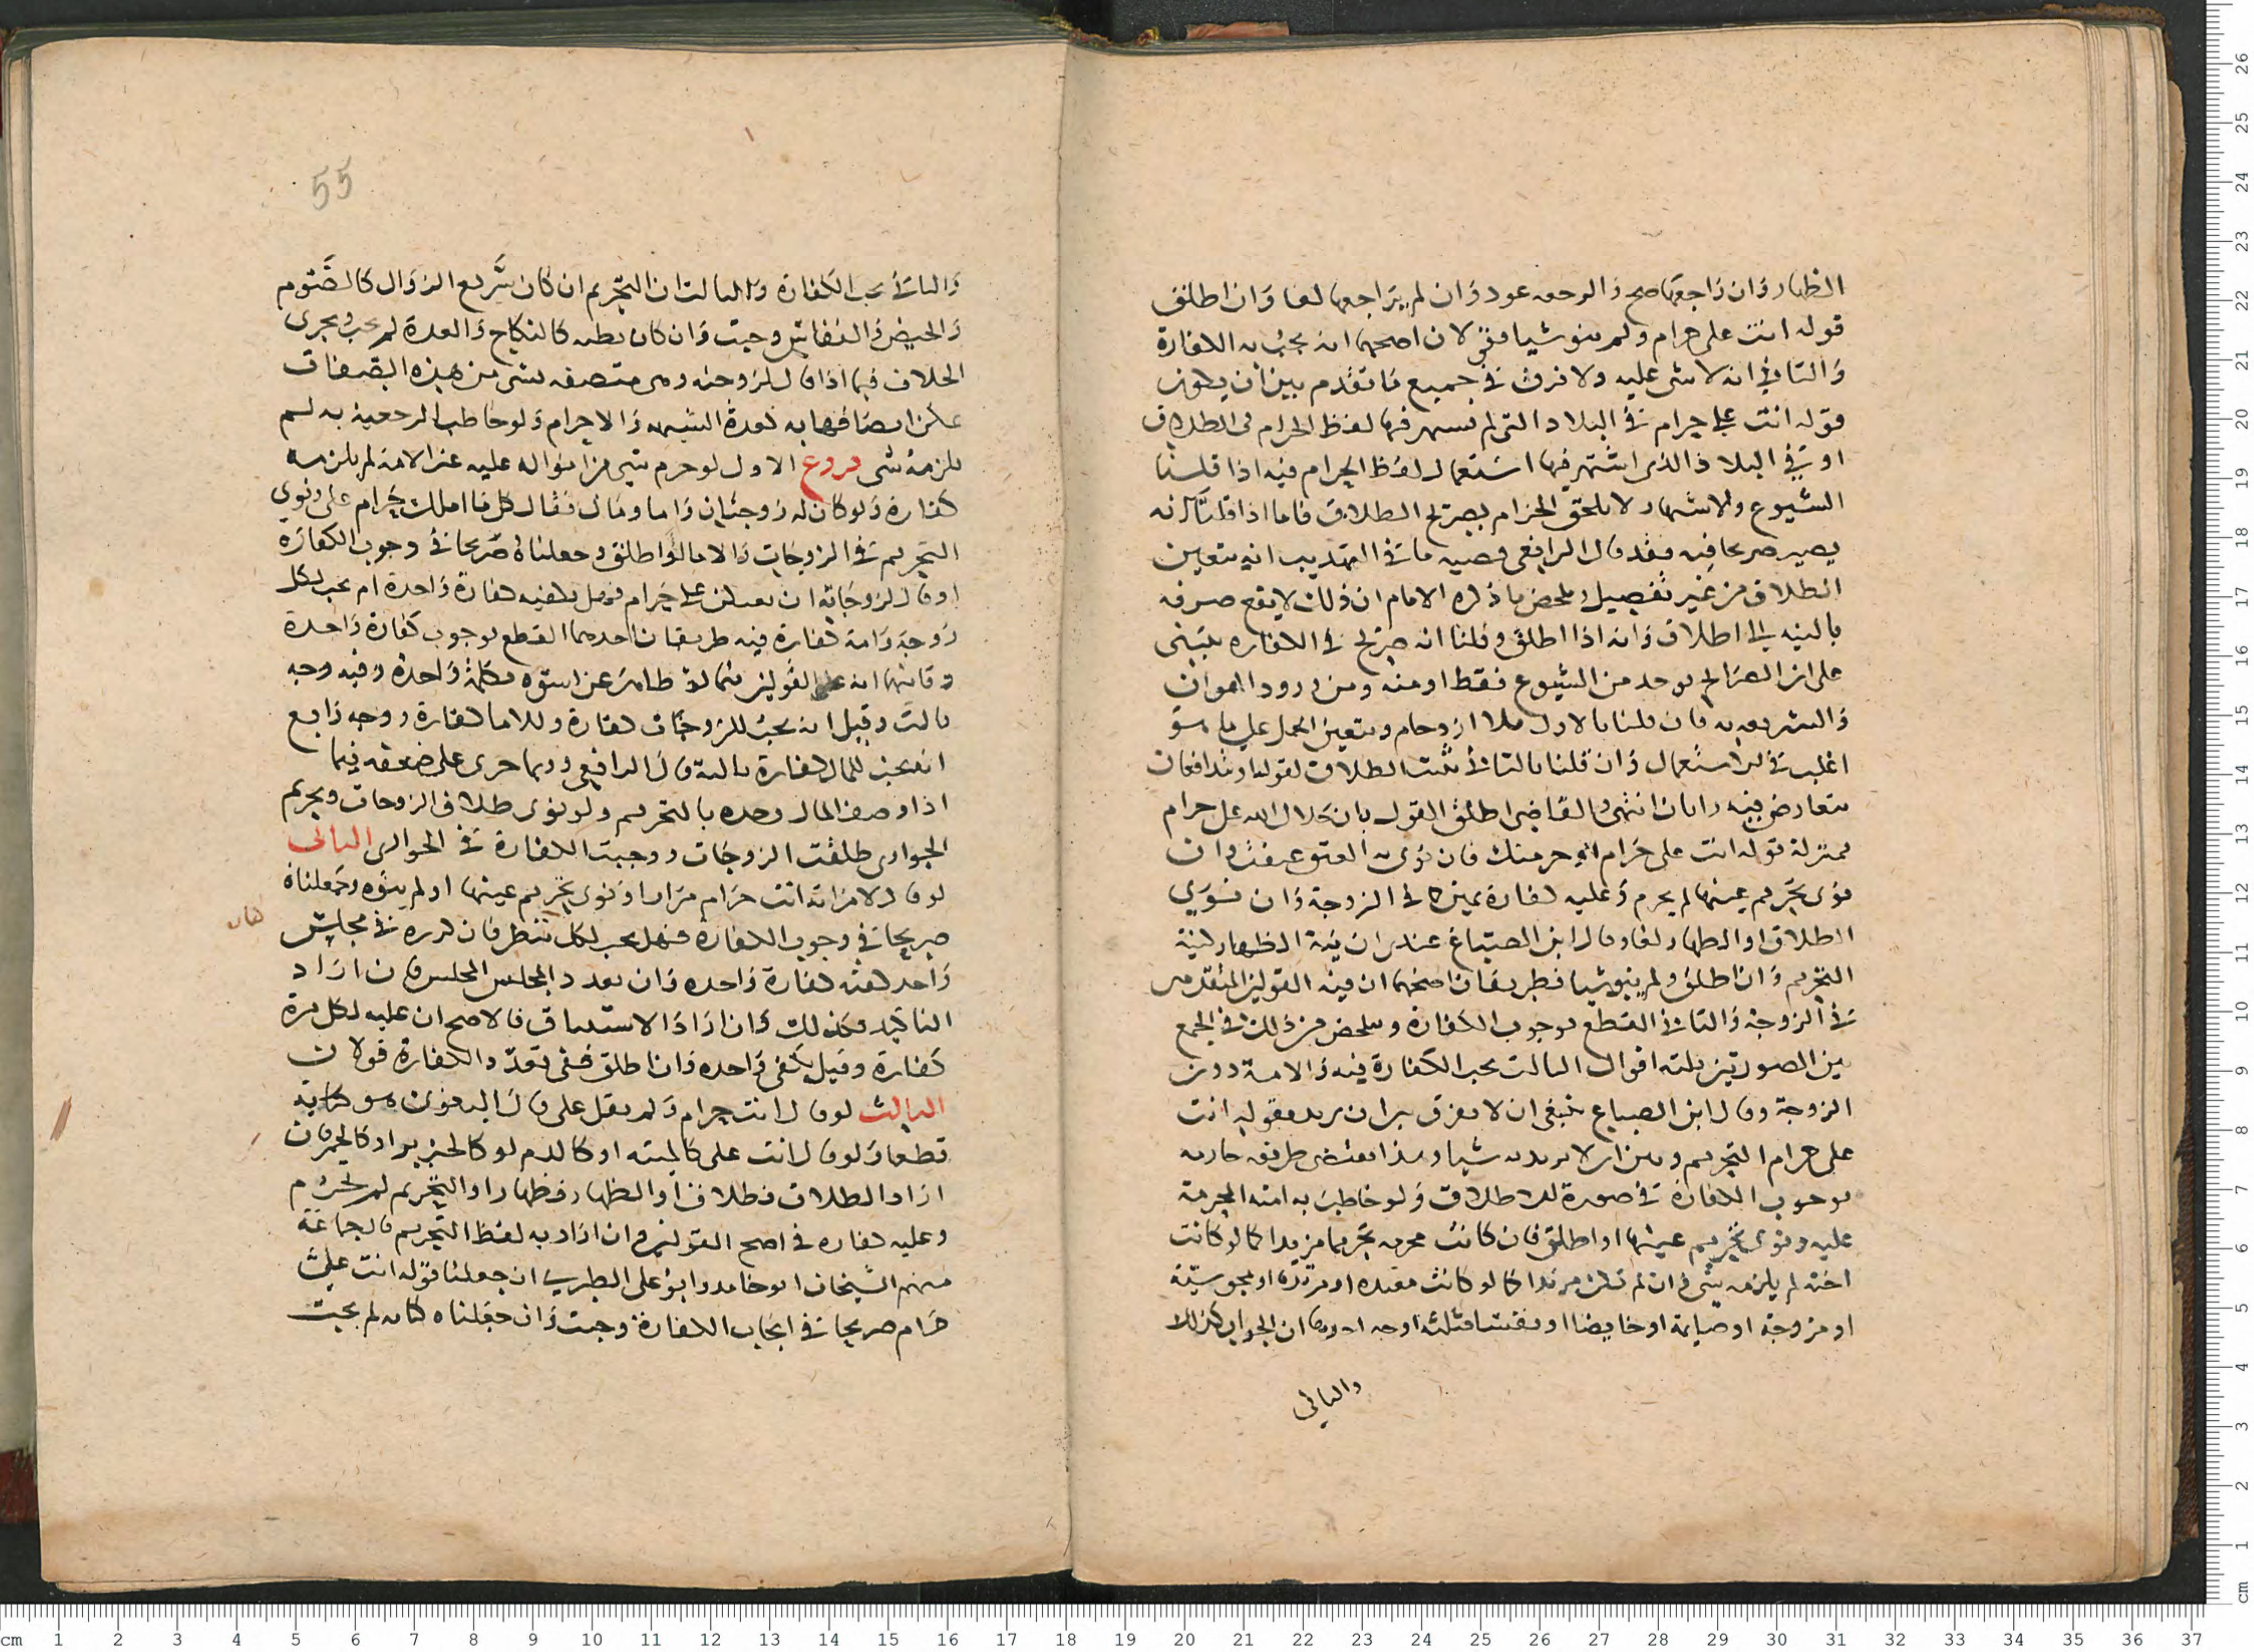 الظهار وان راجعها صح والرجعه عود وان لم يراجعها لغا وان اطلق
قوله انت على حرام ولم ينو شيا فقولان اصحهما انه يجب به الكفارة
والثاني انه لا شى عليه ولا فرق في جميع ما تقدم بين ان يكون
قوله انت على حرام في البلاد التى لم يشتهر فيها لفظ الحرام فى الطلاق
او في البلاد الذى اشتهر فيها استعمال لفظ الحرام فيه اذا قلنا
الشيوع والاشتهار لا يلحق الحرام بصريح الطلاق فاما اذا قلنا انه
يصير صريحا فيه فقد قال الرافعى قضيه ما في التهذيب انه يتعين
الطلاق من غير تفصيل وملخص ما ذكره الامام ان ذلك لا يقع صرفه
بالنيه الى اطلاق وانه اذا اطلق وقلنا انه صريح في الكفاره ينبنى
على ان الصرايح يوخد من الشيوع فقط او منه ومن ورود القران
والشريعه به فان قلنا بالاول فلا ازدحام ويتعين الحمل على ما هو
اغلب في الاستعمال وان قلنا بالثاني ثبت الطلاق لقوله او يتدافعان
فيه رايان انتهى والقاضى اطلق القول بان حلال الله على حرام
بمنزلة قوله انت على حرام او حرمتك فان نوى به العتق عتقت وان
نوى تحريم عينها لم يحرم وعليه كفارة يمين كما في الزوجة وان نوى
الطلاق او الظهار لغا وقال ابن الصباغ عندى ان نية الظهار كنية
التحريم وان اطلق ولم ينو شيا فطريقان اصحهما ان فيه القولين المتقدمين
في الزوجة والثاني القطع بوجوب الكفارة وملخص من ذلك في الجمع
بين الصورتين ثلثه اقوال الثالث يجب الكفارة فيه والامة دون
الزوجة وقال ابن الصباغ ينبغى ان لا يفرق بين ان يريد بقوله انت
على حرام التحريم وبين ان لا يريد به شيا وهذا يقتضى طريقه جازمه
بوجوب الكفارة في صورة الاطلاق ولو خاطب به امته المحرمة
عليه ونوى تحريم عينها او اطلق فان كانت محرمه تحريما مؤبدا كما لو كانت
اخته لم يلزمه شى وان لم تكن مؤبدا كما لو كانت معتده او مرتدة او مجوسية
او مزوجة او صايمة او حايضا او نفسا فثلثه اوجه احدها ان الجواب كذلك
والثاني
55
والثاني يجب الكفارة والثالث ان التحريم ان كان سريع الزوال كالصوم
والحيض والنفاس وجبت وان كان بطيه كالنكاح والعدة لم يجب ويجرى
الخلاف فيما اذا قال لزوجته وهى متصفه بشى من هذه الصفات
يمكن اتصافها به كعدة الشبهه والاحرام ولو خاطب الرجعية به لم
يلزمه شى فروع الاول لو حرم شى من امواله عليه غير الامة لم يلزمه
كفارة ولو كان له زوجتان واما ومال فقال كل ما املك حرام على ونوى
التحريم في الزوجات والاما او اطلق وجعلناه صريحا في وجوب الكفارة
او قال لزوجاته انتن على حرام فهل يكفيه كفارة واحدة ام يجب لكل
زوجة وامة كفارة فيه طريقان احدهما القطع بوجوب كفارة واحدة
وثانيهما انه على القولين فيما لو ظاهر عن نسوه بكلمة واحدة وفيه وجه
ثالث وقيل انه يجب للزوجات كفارة وللاما كفارة ووجه رابع
انه يجب للمال كفارة ثالثة قال الرافعى وربما جرى على ضعفه فيما
اذا وصف المال وحده بالتحريم ولو نوى طلاق الزوجات وتحريم
الجوارى طلقت الزوجات ووجبت الكفارة في الجوارى الثانى
لو قال لامراته انت حرام مرارا ونوى تحريم عينها او لم ينوه وجعلناه
صريحا في وجوب الكفارة فهل يجب لكل تنظر فان كرره في مجلس
واحد كفته كفارة واحده وان تعدد المجلس فان اراد
التاكيد فكذلك وان اراد الاستيناف فالاصح ان عليه لكل مرة
كفارة وقيل يكفى واحده وان اطلق ففى تعدد الكفارة قولان
الثالث لو قال انت حرام ولم يقل على قال البغوى هو كناية
قطعا ولو قال انت على كالميته او كالدم او كالخنزير او كالخمر فان
اراد الطلاق فطلاق او الظهار فظهار او التحريم لم يحرم
وعليه كفاره في اصح القولين وان اراد به لفظ التحريم قال جماعة
منهم الشيخان ابو حامد وابو على الطبرى ان جعلنا قوله انت على
حرام صريحا في ايجاب الكفارة وجبت وان جعلناه كنايه لم يجب